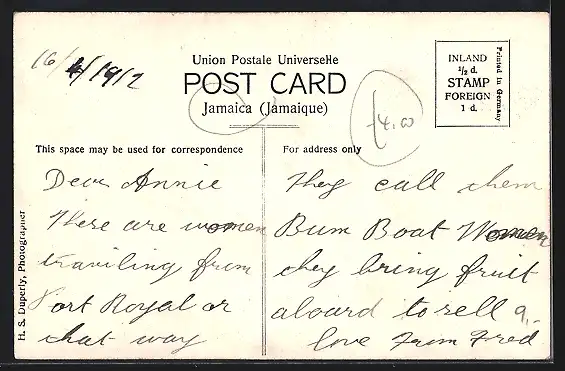 16/4/1912
Union Postale Universelle
POST CARD
Jamaica (Jamaique)
£4.00
INLAND
½ d.
STAMP
FOREIGN
1 d.
Printed in Germany
This space may be used for correspondence
For address only
Dear Annie
There are women
traviling from
Port Royal or
that way
They call them
Bum Boat Women
they bring fruit
aboard to sell
love From Fred
H. S. Duperly, Photographer